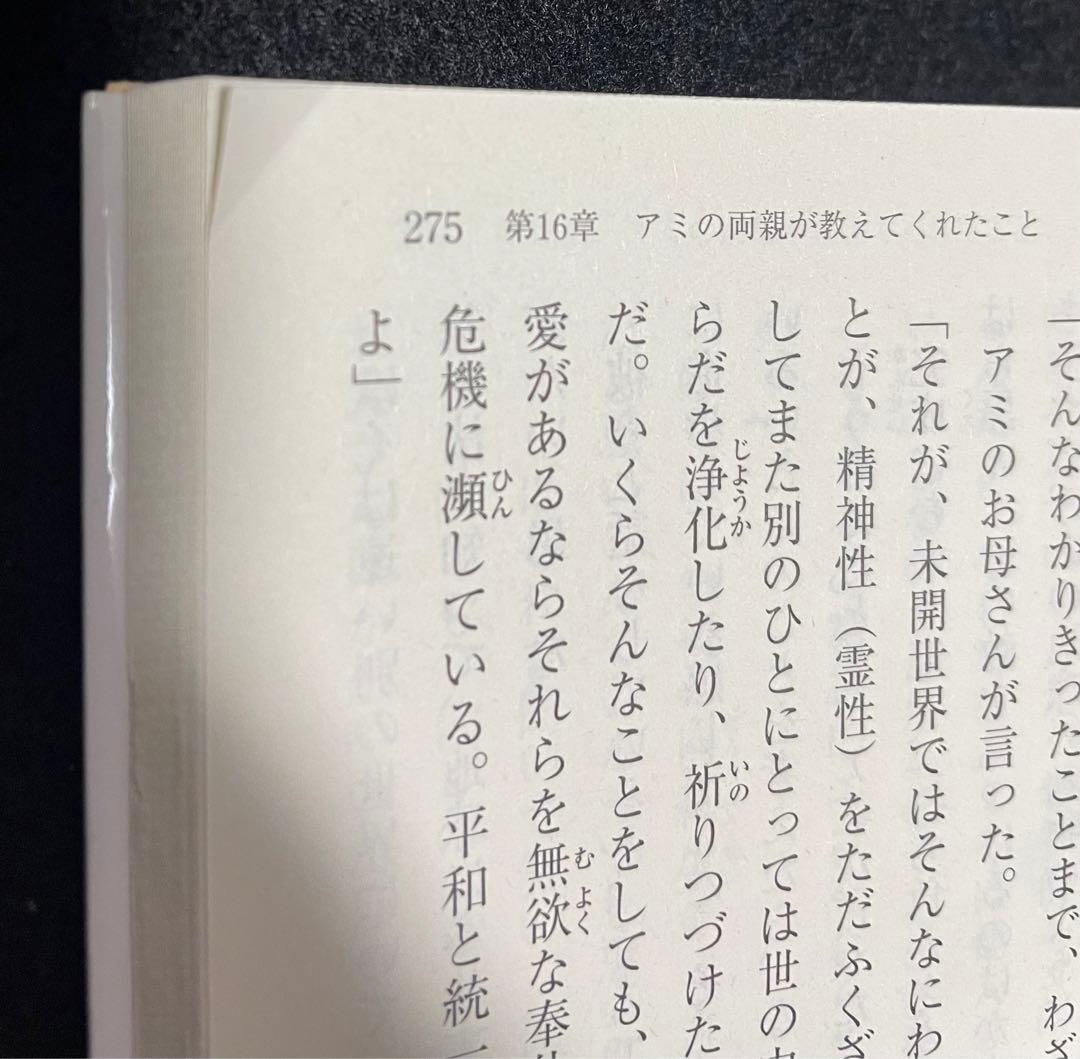 275 第16章 アミの両親が教えてくれたこと
「そんなわかりきったことまで、わざ
アミのお母さんが言った。
「それが、未開世界ではそんなにわ
とが、精神性（霊性）をただふくざ
してまた別のひとにとっては世の
らだを浄化したり、祈りつづけた
だ。いくらそんなことをしても、
愛があるならそれらを無欲な奉
危機に瀕している。平和と統一
よ」